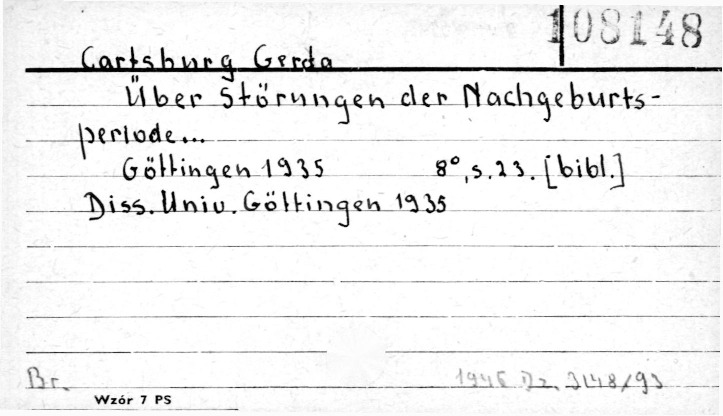 108148
Carlsburg Gerda
Über Störungen der Nachgeburts-
periode...
Göttingen 1935 8°, s. 23. [bibl.]
Diss. Univ. Göttingen 1935
Br. 1946 Dz. 3148/93
Wzór 7 PS